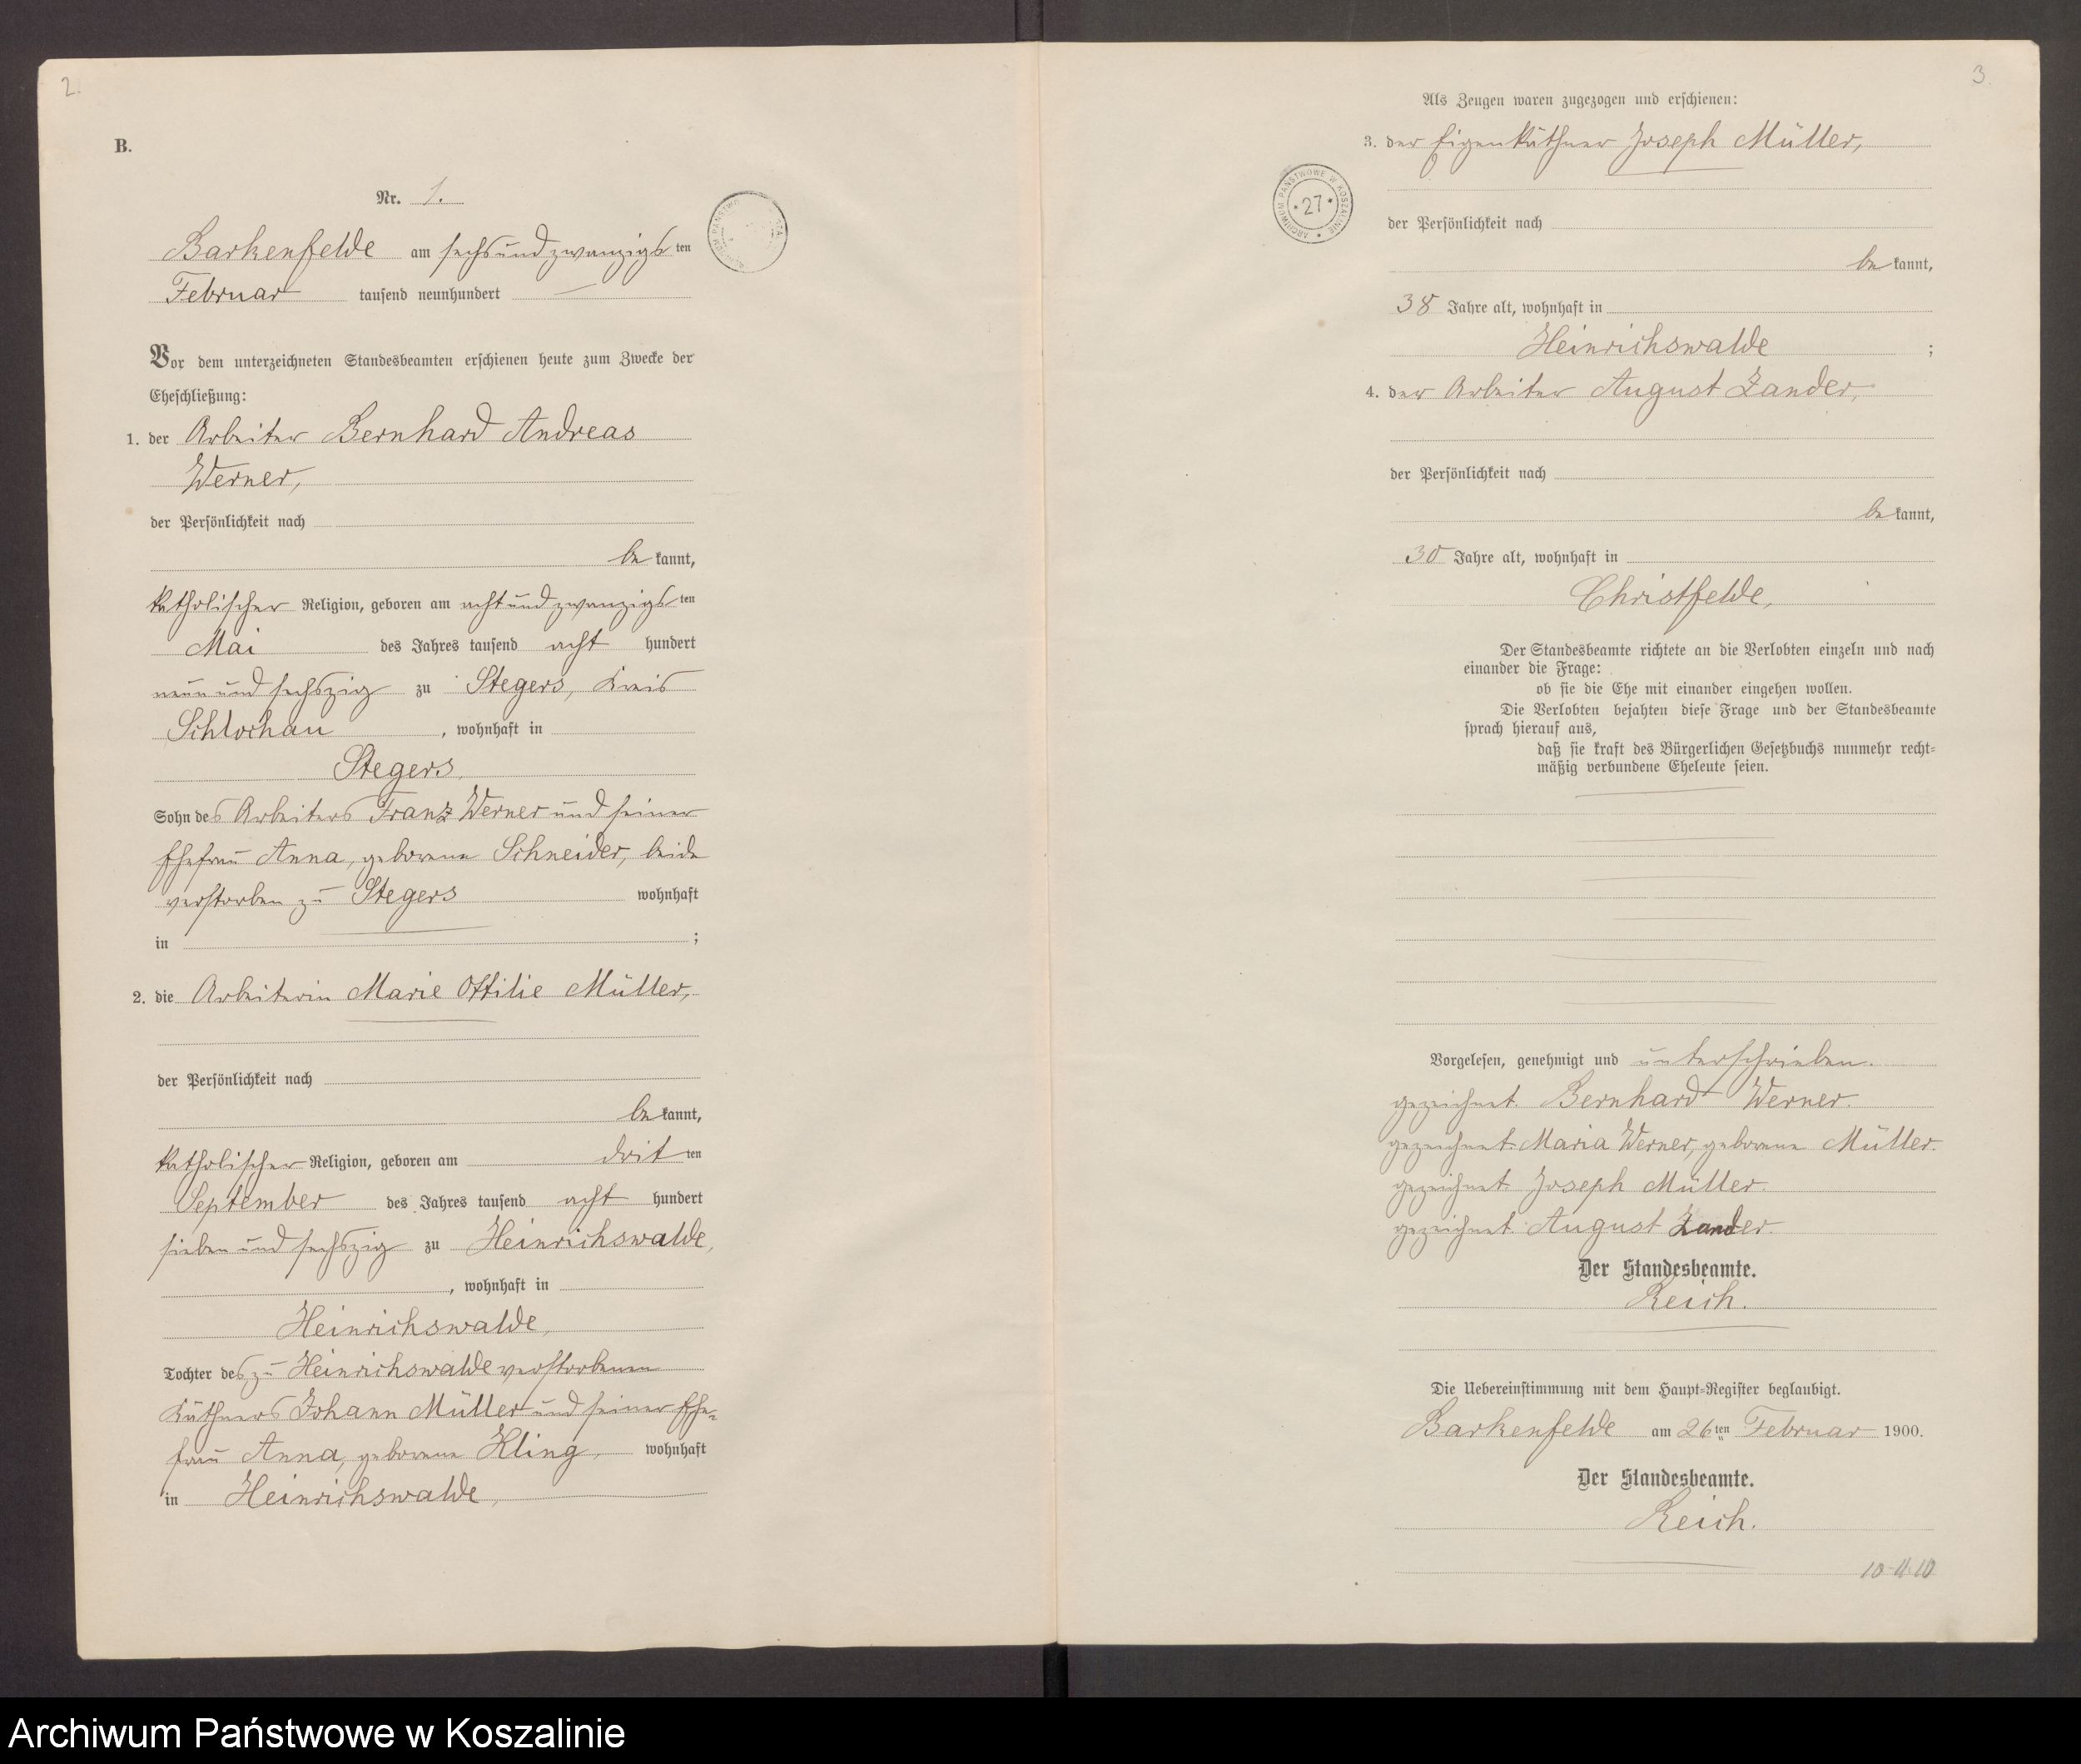 2.
B.
Nr. 1.
Barkenfelde am sechsundzwanzigsten
Februar tausend neunhundert —
Vor dem unterzeichneten Standesbeamten erschienen heute zum Zwecke der
Eheschließung:
1. der Arbeiter Bernhard Andreas
Werner,
der Persönlichkeit nach
bekannt,
katholischer Religion, geboren am achtundzwanzigsten
Mai des Jahres tausend acht hundert
neun und sechszig zu Stegers, Kreis
Schlochau, wohnhaft in
Stegers,
Sohn des Arbeiters Franz Werner und seiner
Ehefrau Anna, geborene Schneider, beide
verstorben zu Stegers wohnhaft
in ;
2. die Arbeiterin Marie Ottilie Müller,
der Persönlichkeit nach
bekannt,
katholischer Religion, geboren am dritten
September des Jahres tausend acht hundert
sieben und sechszig zu Heinrichswalde,
, wohnhaft in
Heinrichswalde,
Tochter des zu Heinrichswalde verstorbenen
Käthners Johann Müller und seiner Ehe-
frau Anna, geborene Kling, wohnhaft
in Heinrichswalde,
3.
Als Zeugen waren zugezogen und erschienen:
3. der Eigenkäthner Joseph Müller,
ARCHIWUM PAŃSTWOWE W KOSZALINIE
* 27 *
der Persönlichkeit nach
bekannt,
38 Jahre alt, wohnhaft in
Heinrichswalde ;
4. der Arbeiter August Zander,
der Persönlichkeit nach
bekannt,
30 Jahre alt, wohnhaft in
Christfelde,
Der Standesbeamte richtete an die Verlobten einzeln und nach
einander die Frage:
ob sie die Ehe mit einander eingehen wollen.
Die Verlobten bejahten diese Frage und der Standesbeamte
sprach hierauf aus,
daß sie kraft des Bürgerlichen Gesetzbuchs nunmehr recht-
mäßig verbundene Eheleute seien.
Vorgelesen, genehmigt und unterschrieben.
gezeichnet. Bernhard Werner.
gezeichnet. Maria Werner, geborene Müller.
gezeichnet. Joseph Müller.
gezeichnet. August Zander.
Der Standesbeamte.
Reich.
Die Uebereinstimmung mit dem Haupt-Register beglaubigt.
Barkenfelde am 26ten Februar 1900.
Der Standesbeamte.
Reich.
Archiwum Państwowe w Koszalinie